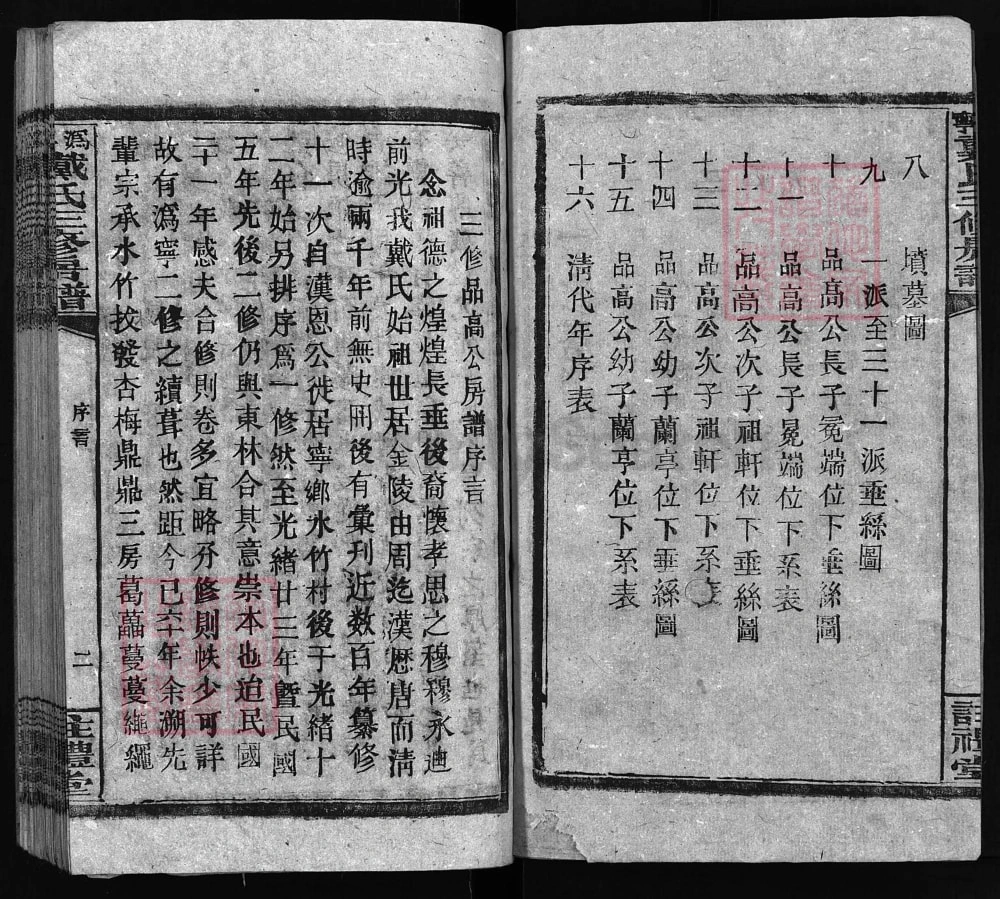 八 墳墓圖
九 一派至三十一派垂絲圖
十 品高公長子冕端位下垂絲圖
十一 品高公長子冕端位下系表
十二 品高公次子祖軒位下垂絲圖
十三 品高公次子祖軒位下系表
十四 品高公幼子蘭亭位下垂絲圖
十五 品高公幼子蘭亭位下系表
十六 淸代年序表
註禮堂
三修品高公房譜序言
念祖德之煌煌長垂後裔懷孝思之穆穆永迪
前光我戴氏始祖世居金陵由周迄漢歷唐而淸
時逾兩千年前無史冊後有彙刊近数百年纂修
十一次自漢恩公徙居寧鄉水竹村後于光緒十
二年始另排序爲一修然至光緒廿三年暨民國
五年先後二修仍與東林合其意崇本也迨民國
三十一年感夫合修則卷多宜略分修則帙少可詳
故有潙寧二修之續葺也然距今已六十年余溯先
輩宗承水竹技發杏梅鼎鼎三房葛藟蔓蔓繩繩
戴氏三修房譜
序言
二
註禮堂